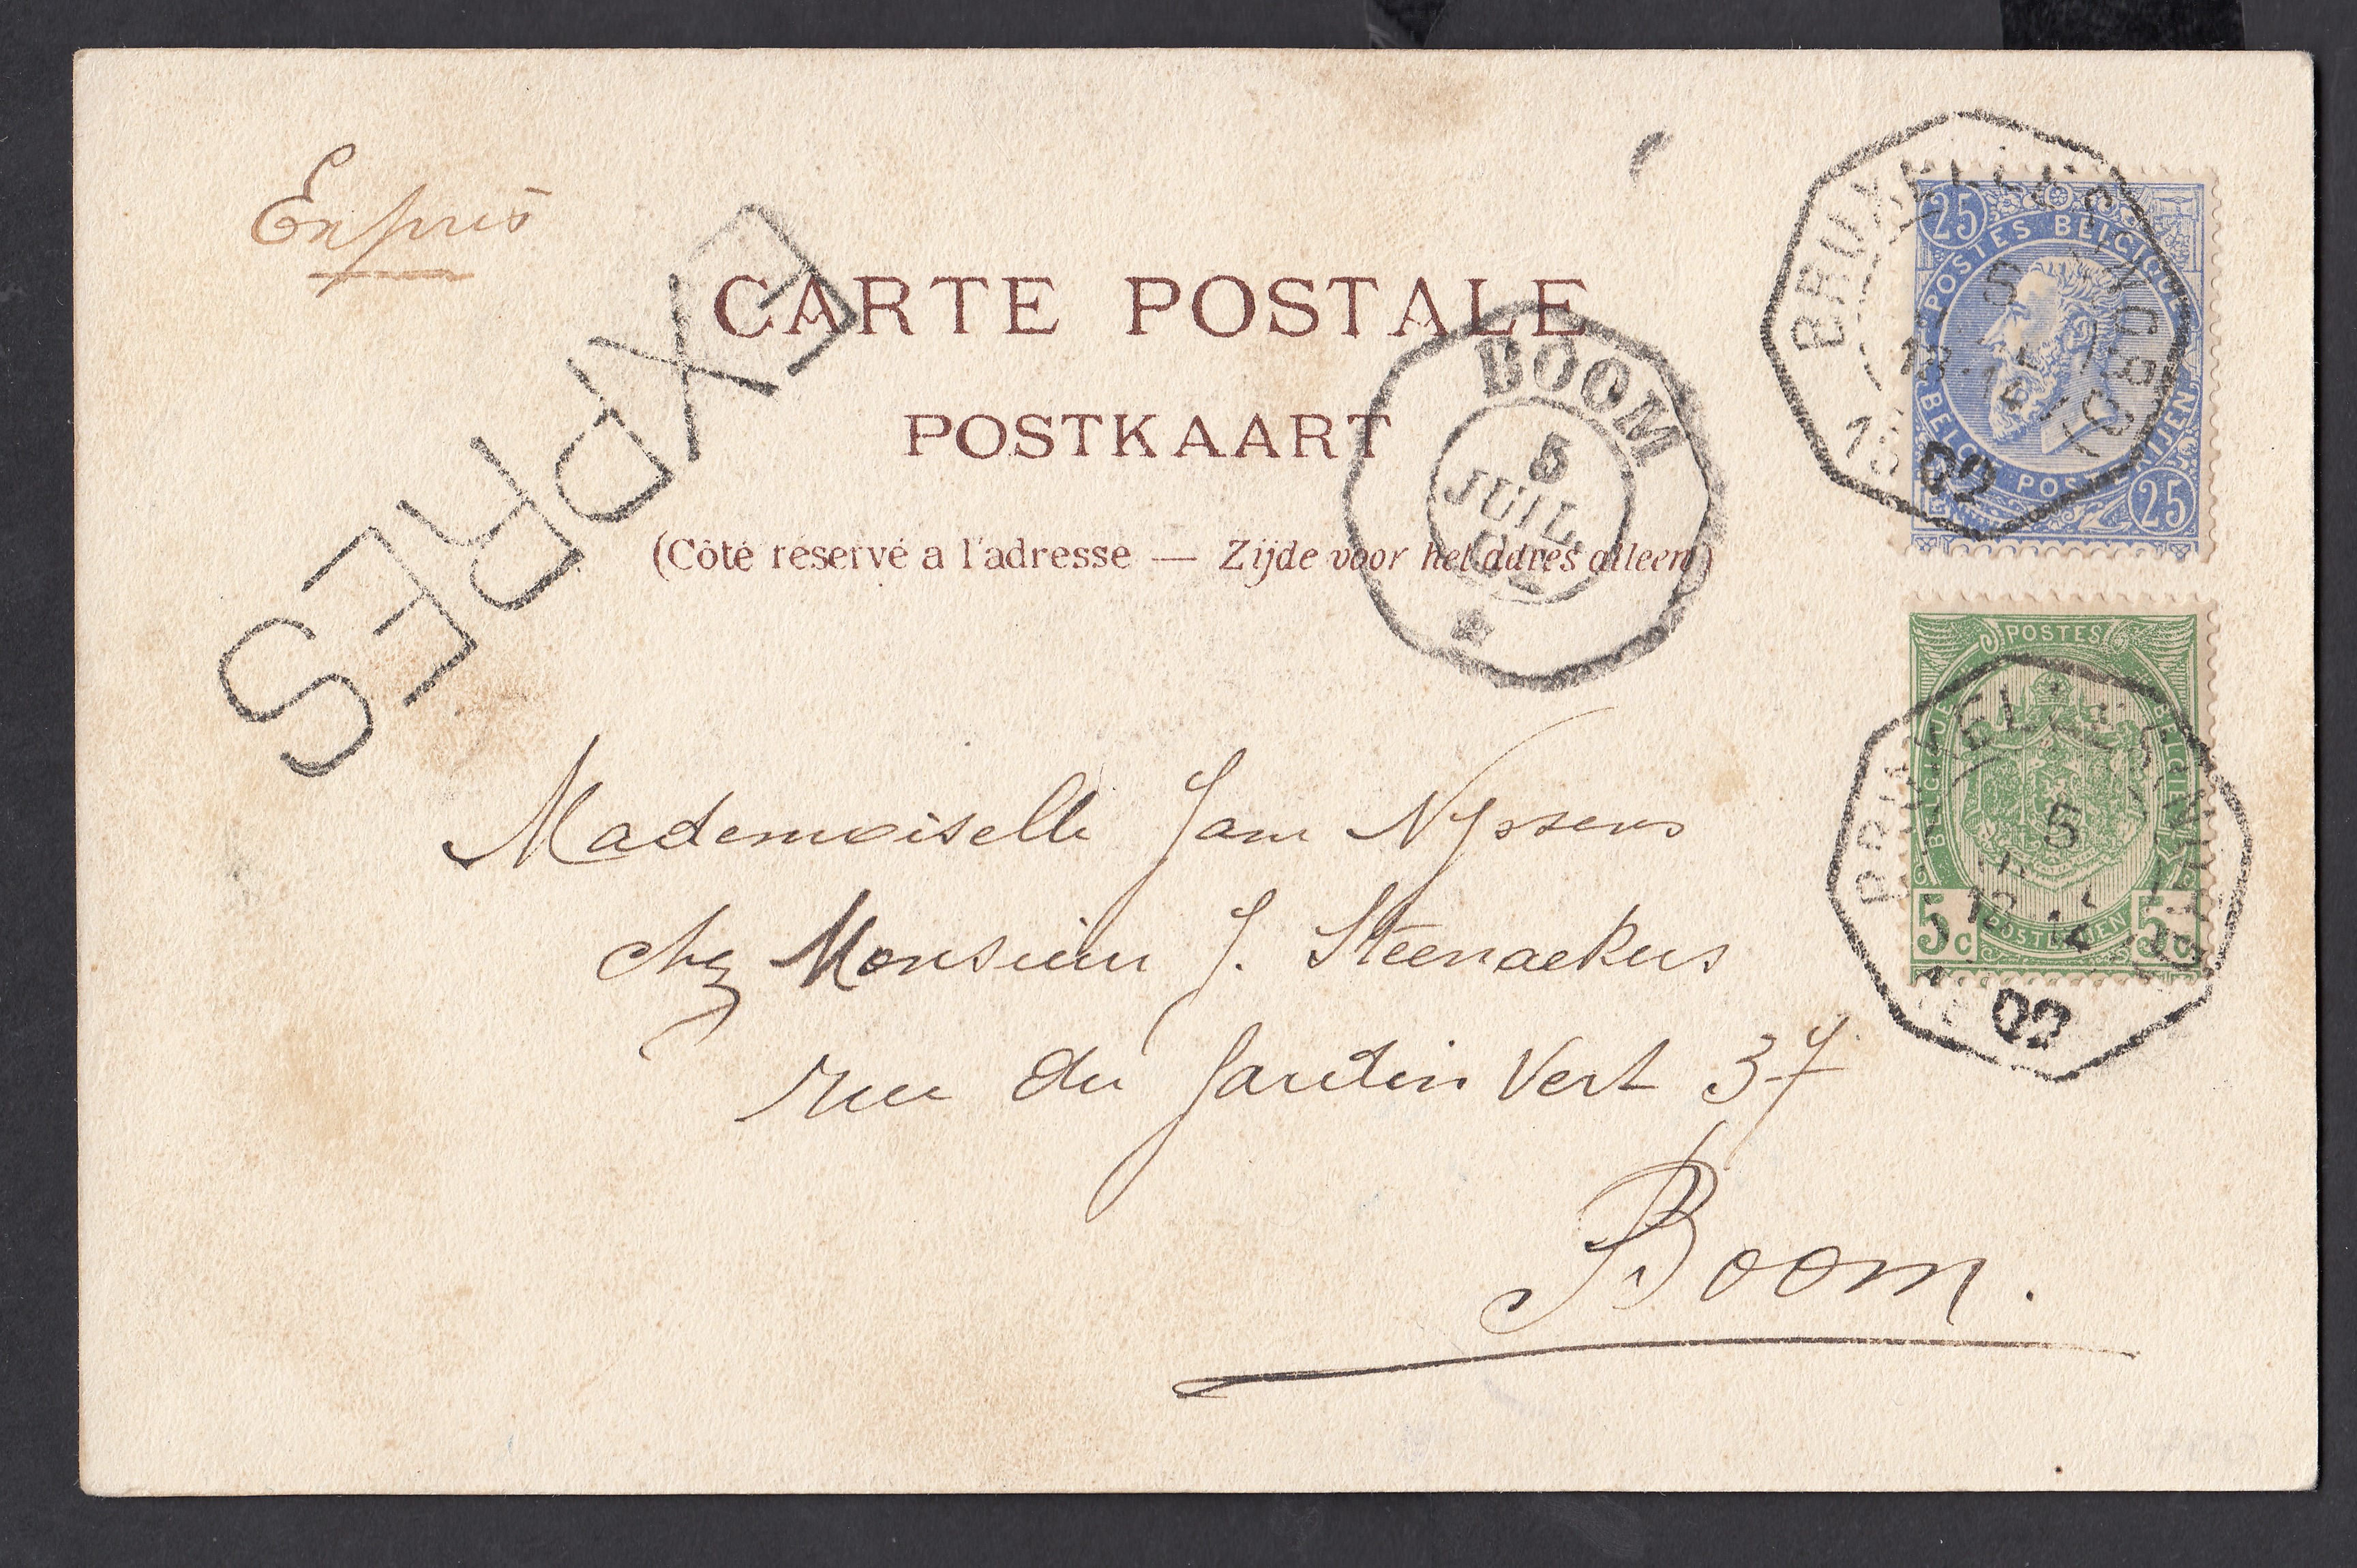 Expres
EXPRES
CARTE POSTALE
POSTKAART
(Côté réservé a l'adresse — Zijde voor het adres alleen)
BOOM
5
JUIL.
BRUXELLES
5
12-
02
25
POSTES BELGIQUE
BELGIE POSTERIJEN
25
POSTES
BELGIQUE
BELGIE
5c POSTERIJEN 5c
BRUXELLES
5
12-
02
Mademoiselle Jane Nyssens
chez Monsieur J. Steenackers
rue du Jardin Vert 37
Boom.